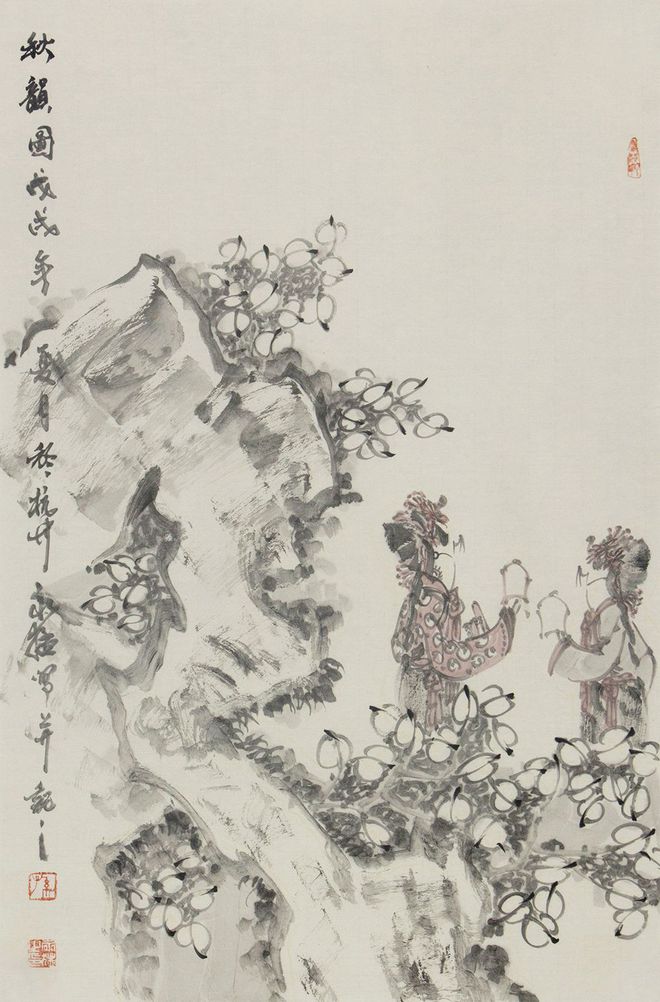 秋韻圖戊戌年夏月於杭州永強寫并記之